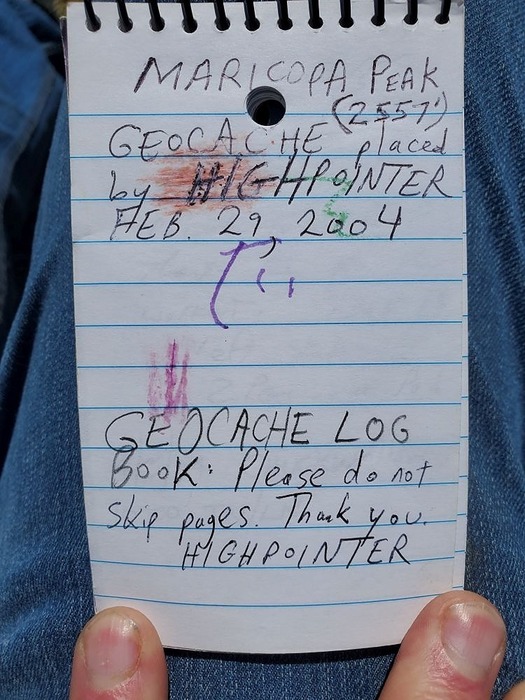 MARICOPA PEAK
(2557')
GEOCACHE placed
by HIGHPOINTER
FEB. 29, 2004
GEOCACHE LOG
BOOK: Please do not
skip pages. Thank you.
HIGHPOINTER